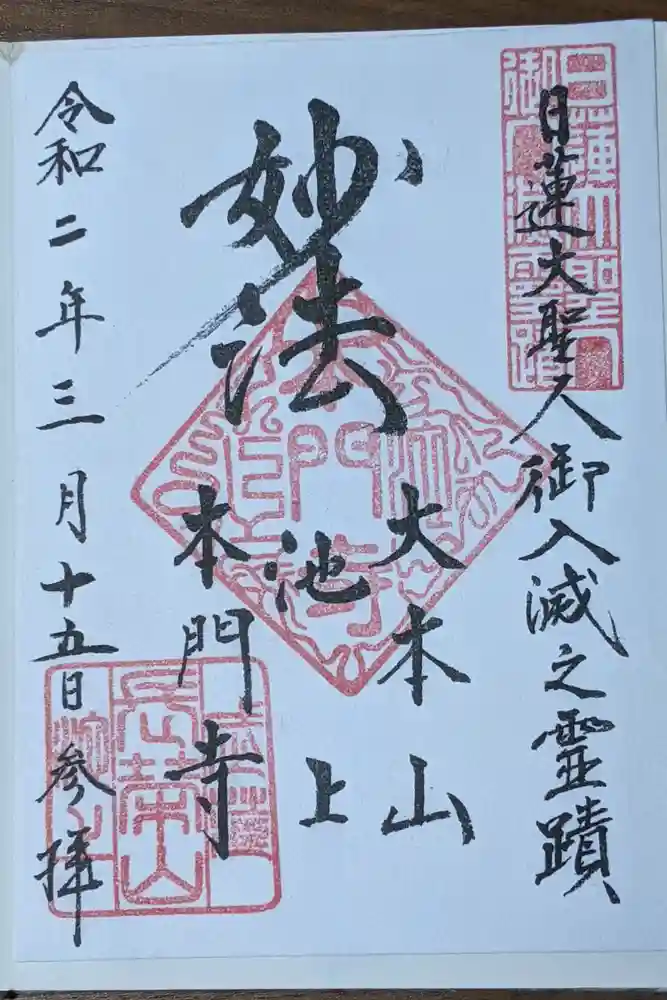 日蓮大聖人御入滅之霊蹟
妙法
大本山
池上
本門寺
令和二年三月十五日参拝